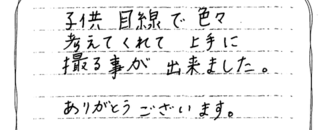 子供目線で色々
考えてくれて 上手に
撮る事が 出来ました。
ありがとうございます。